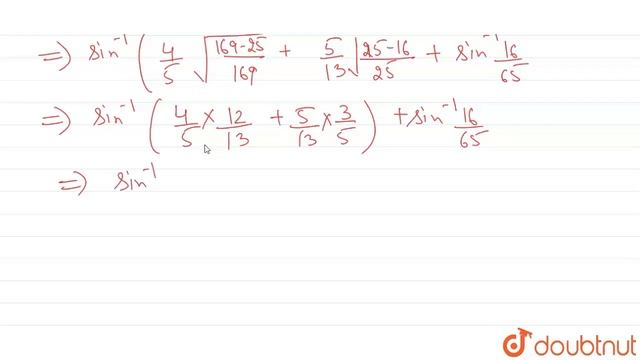 =) sin⁻¹ ( 4/5 √(169-25)/169 + 5/13 √(25-16)/25 + sin⁻¹ 16/65
=) sin⁻¹ ( 4/5 × 12/13 + 5/13 × 3/5 ) + sin⁻¹ 16/65
=) sin⁻¹
doubtnut